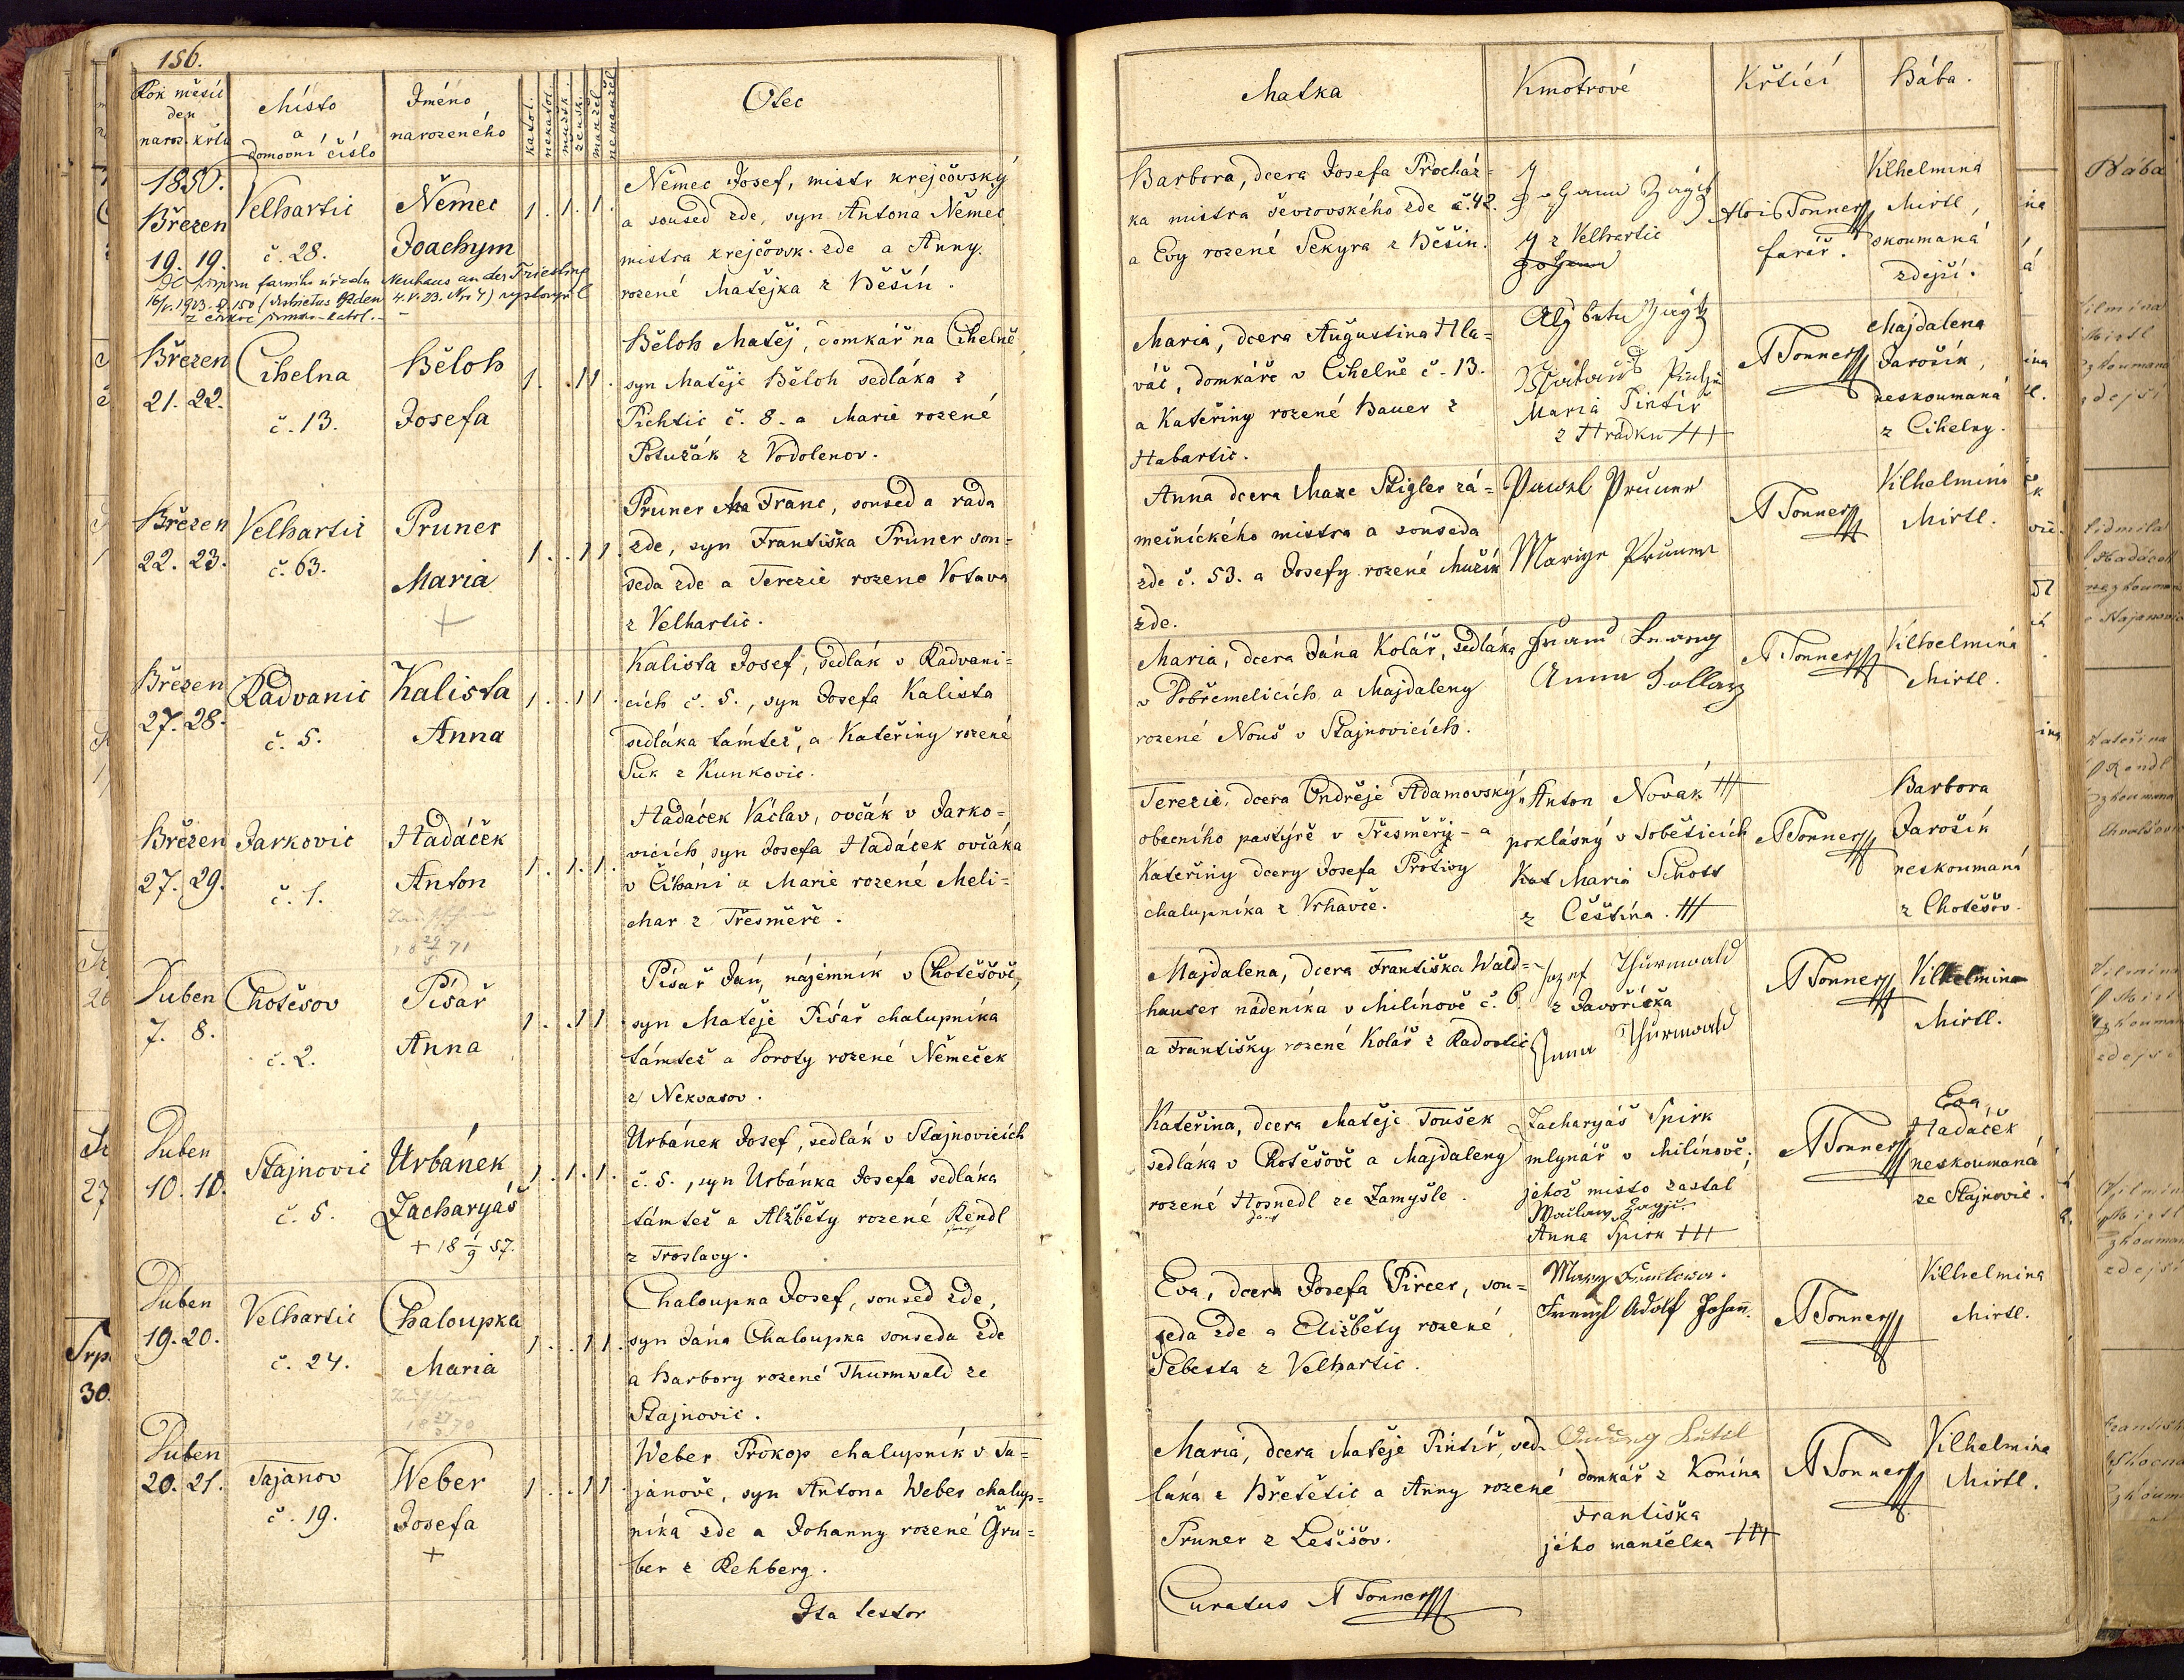 156.
Rok měsíc
den
naroz. křtu
Místo
a
domovní číslo
Jméno
narozeného
katol.
nekatol.
mužsk.
žensk.
manžel
nemanžel
Otec
Matka
Kmotrové
Křtící
Bába.
1850.
Březen
19. 19.
Velhartic
č. 28.
Němec
Joachym
1. 1. 1.
Němec Josef, mistr krejčovský
a soused zde, syn Antona Němec
mistra krejčovsk. zde a Anny
rozené Matějka z Běšín.
Barbora, dcera Josefa Procház=
ka mistra ševcovského zde č. 42.
a Evy rozené Sekyra z Běšin.
z Velhartic
Alois Tonner
farář.
Vilhelmina
Mirtl,
skoumaná
zdejší.
farního úřadu Neuhaus an der Triesting
Březen
21. 22.
Cihelna
č. 13.
Běloh
Josefa
1. . 1 1.
Běloh Matěj, domkář na Cihelně
syn Matěje Běloh sedláka z
Pichtic č. 8. a Marie rozené
Potužák z Vodolenov.
Maria, dcera Augustina Hla=
váč, domkáře v Cihelně č. 13.
a Kateřiny rozené Bauer z
Habartic.
Maria Pintíř
z Hrádku +++
A Tonner
Majdalena
Jarošík,
neskoumaná
z Cihelny.
Březen
22. 23.
Velhartic
č. 63.
Pruner
Maria
+
1. . 1 1.
Pruner Franc, soused a rada
zde, syn Františka Pruner sou=
seda zde a Terezie rozené Votava
z Velhartic.
Anna dcera Maxe Stigler zá=
mečníckého mistra a souseda
zde č. 53. a Josefy rozené Mužík
zde.
Pawel Pruner
Mariye Pruner
A Tonner
Vilhelmina
Mirtl.
Březen
27. 28.
Radvanic
č. 5.
Kalista
Anna
1. . 1 1.
Kalista Josef, sedlák v Radvani=
cích č. 5., syn Josefa Kalista
sedláka támtež, a Kateřiny rozené
Suk z Kunkovic.
Maria, dcera Jána Kolář, sedláka
v Dobřemelicích a Majdaleny
rozené Nouš v Stajnovicích.
Anna
A Tonner
Vilhelmina
Mirtl.
Březen
27. 29.
Jarkovic
č. 1.
Hadáček
Anton
1. 1. 1.
Hadáček Václav, ovčák v Jarko=
vicích, syn Josefa Hadáček ovčáka
v Číháni a Marie rozené Meli=
char z Třesměře.
Terezie, dcera Ondřeje Adamovský,
obecního pastýře v Třesměři a
Kateřiny dcery Josefa Protivy
chalupníka z Vrhavče.
Anton Novák +++
poklásný v Soběticích
Maria Schott
z Čeština. +++
A Tonner
Barbora
Jarošík
neskoumaná
z Chotěšov.
Duben
7. 8.
Chotěšov
č. 2.
Písař
Anna
1. . 1 1.
Písař Ján, nájemník v Chotěšově,
syn Matěje Písař chalupníka
támtež a Doroty rozené Němeček
z Nekvasov.
Majdalena, dcera Františka Wald=
hauser nádeníka v Milínově č. 6.
a Františky rozené Kolář z Radostic
Josef Thürmwald
z Javoříčka
Anna Thürmwald
A Tonner
Vilhelmina
Mirtl.
Duben
10. 10.
Stajnovic
č. 5.
Urbánek
Zacharyáš
+ 18 1/9 57.
1. 1. 1.
Urbánek Josef, sedlák v Stajnovicích
č. 5., syn Urbánka Josefa sedláka
támtež a Alžběty rozené Rendl
z Troslavy.
Kateřina, dcera Matěje Toušek
sedláka v Chotěšově a Majdaleny
rozené Hosnedl ze Zamyšle.
Zacharyáš Spirk
mlynář v Milínově;
jehož místo zastal
Anna Spirk +++
A Tonner
Eva
Hadáček
neskoumaná
ze Stajnovic.
Duben
19. 20.
Velhartic
č. 24.
Chaloupka
Maria
1. . 1 1.
Chaloupka Josef, soused zde,
syn Jána Chaloupka souseda zde
a Barbory rozené Thurmwald ze
Stajnovic.
Eva, dcera Josefa Pircer, sou=
seda zde a Eližběty rozené
Šebesta z Velhartic.
Adolf Johann
A Tonner
Vilhelmina
Mirtl.
Duben
20. 21.
Tajanov
č. 19.
Weber
Josefa
+
1. . 1 1.
Weber Prokop chalupník v Ta=
janově, syn Antona Weber chalup=
níka zde a Johanny rozené Gru=
ber z Rehberg.
Maria, dcera Matěje Pintíř, sed=
láka z Břetětic a Anny rozené
Pruner z Lešišov.
domkář z Konína
Františka
jého manželka +++
A Tonner
Vilhelmina
Mirtl.
Ita testor
Curatus A Tonner